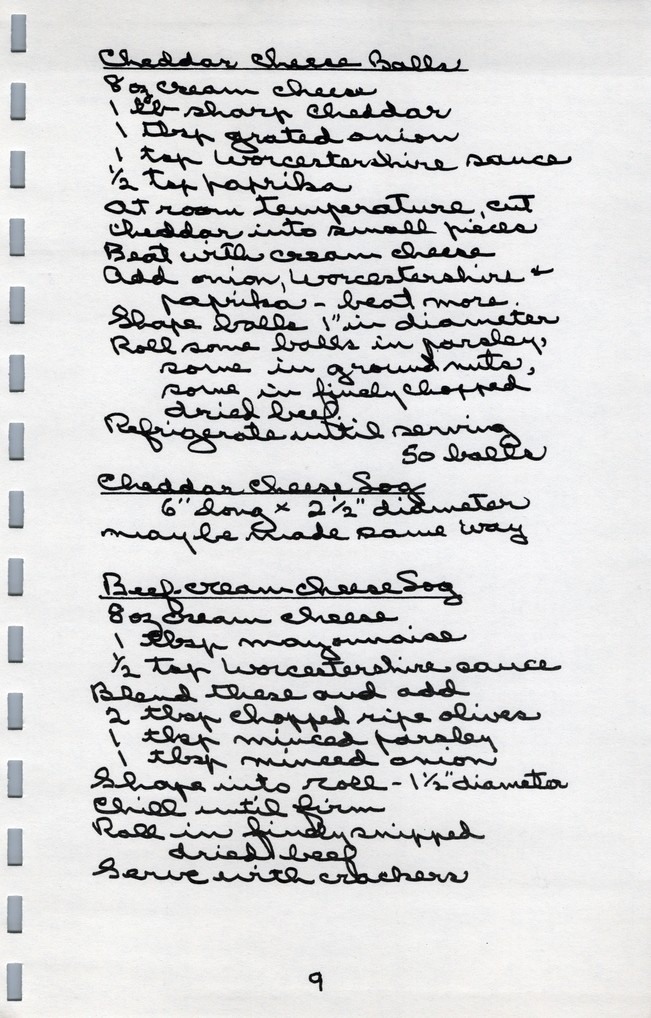 Cheddar Cheese Balls
8 oz cream cheese
1 lb sharp cheddar
1 tbsp grated onion
1 tsp Worcestershire sauce
1/2 tsp paprika
At room temperature, cut
cheddar into small pieces
Beat with cream cheese
Add onion, Worcestershire +
paprika - beat more.
Shape balls 1" in diameter
Roll some balls in parsley,
some in ground nuts,
some in finely chopped
dried beef
Refrigerate until serving
50 balls
Cheddar Cheese Log
6" long x 2 1/2" diameter
may be made same way
Beef-cream cheese Log
8 oz cream cheese
1 tbsp mayonnaise
1/2 tsp Worcestershire sauce
Blend these and add
2 tbsp chopped ripe olives
1 tbsp minced parsley
1 tbsp minced onion
Shape into roll - 1 1/2" diameter
Chill until firm
Roll in finely snipped
dried beef
Serve with crackers
9